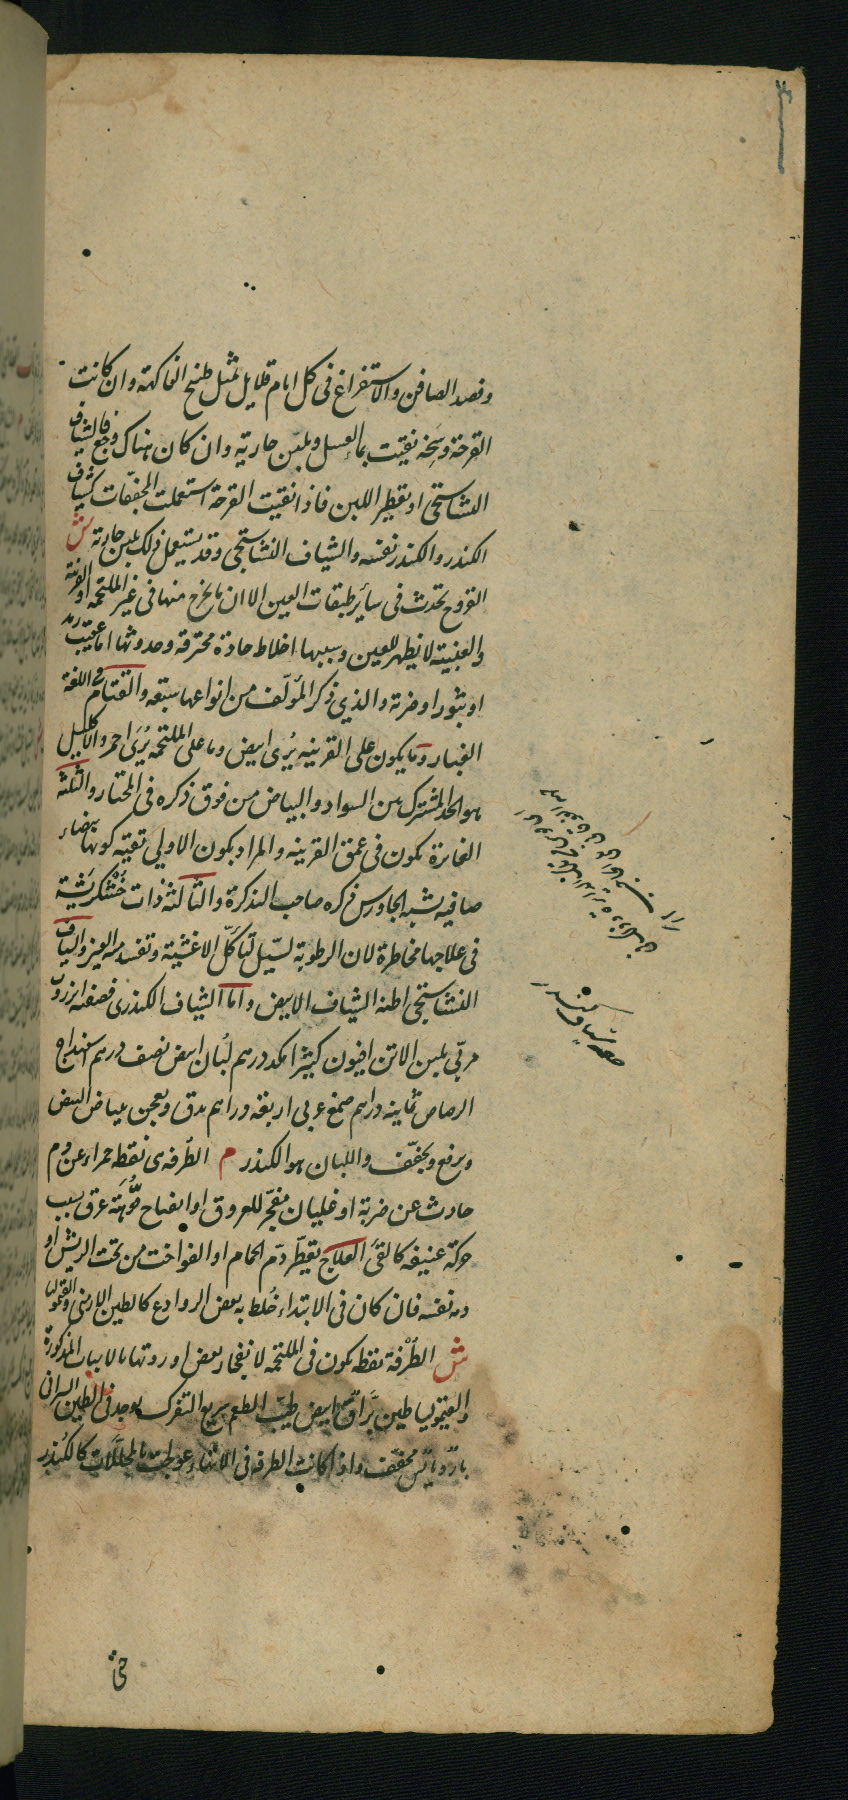 وفصد الصافن والاستفراغ فى كل ايام قلايل بمثل طبيخ الفاكهة وان كانت
القرحة وسخة نقيت بماء العسل ولبن جارية وان كان هناك وجع فالشياف
النشاستجى او تقطير اللبن فاذا نقيت القرحة استعملت المجففات كشياف
الكندر والكندر نفسه والشياف النشاستجى وقد يستعمل ذلك بلبن جارية ش
القروح تحدث فى سائر طبقات العين الا ان ما يخرج منها فى غير الملتحمه او القرنية
والعنبية لا يظهر للعين وسببها اخلاط حادة محترقة وحدوثها اما عقيب رمد
او بثور او ضربة والذي ذكر المؤلف من انواعها سبعة والقتام فى اللغة
الغبار وما يكون على القرنيه يُرى ابيض وما على الملتحمه يُرَى احمر والاكليل
هو الحد المشترك بين السواد والبياض من فوق ذكره فى المختار والثلثة
الغائرة تكون فى عمق القرنيه والمراد بكون الاولي نقية كونها بيضاء
صافيه يشبه الجاورس ذكره صاحب التذكرة والثالثة ذات خُشكريشة
فى علاجها مخاطرة لان الرطوبة تسيل لتأكّل الاغشية وتفسد معه العين والشياف
النشاستجى اظنه الشياف الابيض واما الشياف الكندرى فصفته انزروت
مربّى بلبن الاتن افيون كثيرا مكد درهم لبُان ابيض نصف درهم اسفيداج
الرصاص ثمانية دراهم صمغ عربى اربعة دراهم يدق ويعجن ببياض البيض
ويرفع ويجفف واللبان هو الكندر م الطُرفه هى نقطه حمراء عن دم
حادث عن ضربة او غليان مفجّر للعروق او انفتاح فُوَّهَة عرق بسبب
حركة عنيفه كالقئ العلاج تقطّر دم الحمام او الفواخت من تحت الريش او
دمه نفسه فان كان فى الابتداء خُلط به بعض الروادع كالطين الارمنى والقيموليا
ش الطُرْفة نقطه تكون فى الملتحمه لانفجار بعض اوردتها بالاسباب المذكورة
والقيموليا طين برَّاق ابيض طيّب الطعم سريع التفرك يوجد فى الطين السرانى
بارد يابس مجفف واذا كانت الطرفه فى الانتهاء عولجت بالمحلّلات كالكُندر
صفة شياف كندر